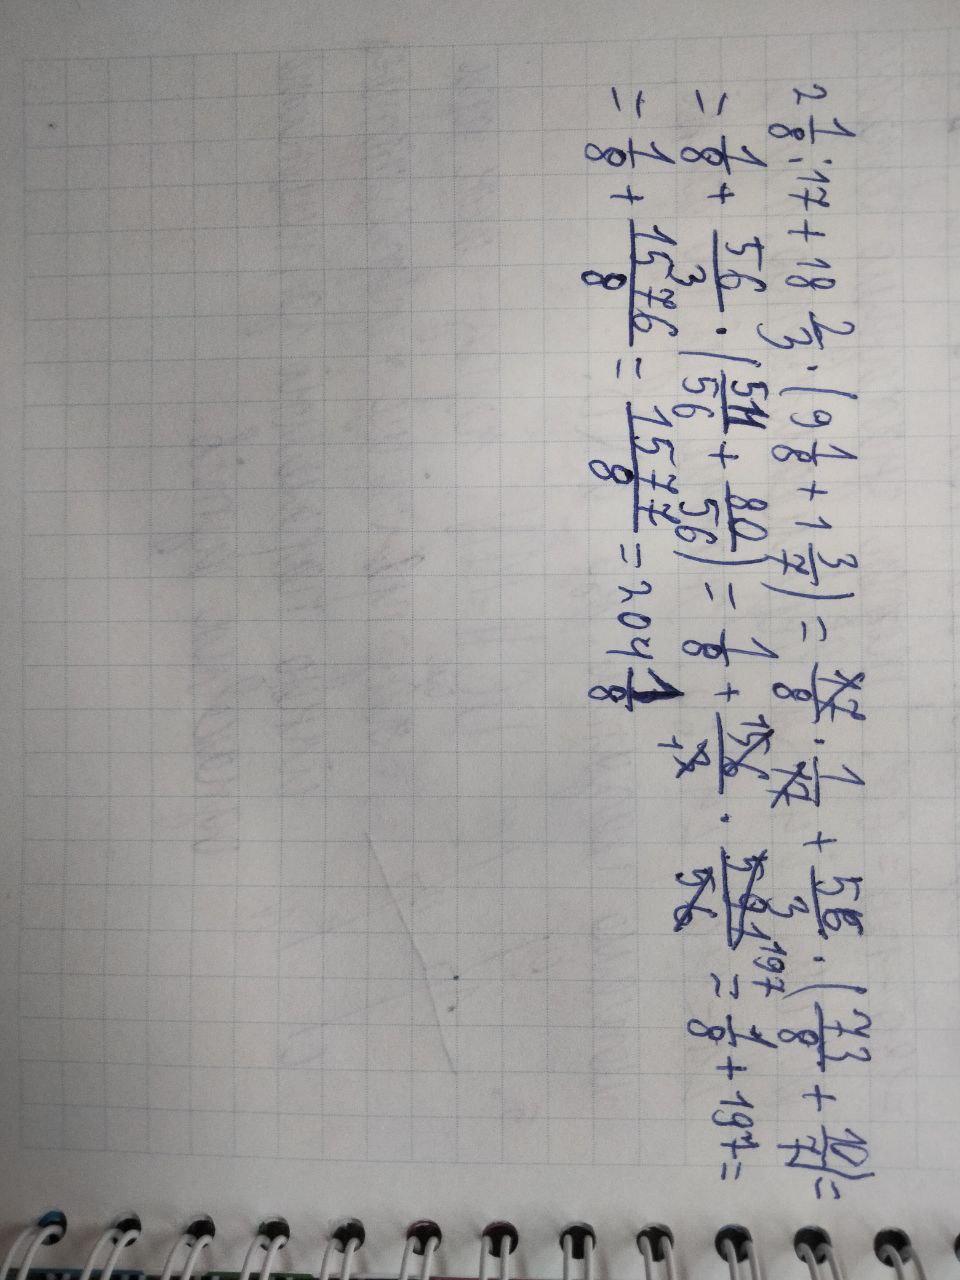 2 1/8 : 17 + 18 2/3 · (9 1/8 + 1 3/7) = 17/8 · 1/17 + 56/3 · (73/8 + 10/7) =
= 1/8 + 56/3 · (511/56 + 80/56) = 1/8 + 156/17 · 591/56 197 = 1/8 + 197 =
= 1/8 + 1576/8 = 1577/8 = 204 1/8